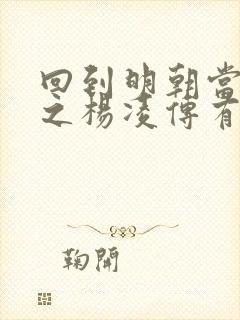 回到明朝當
之楊凌傳有
鞠開